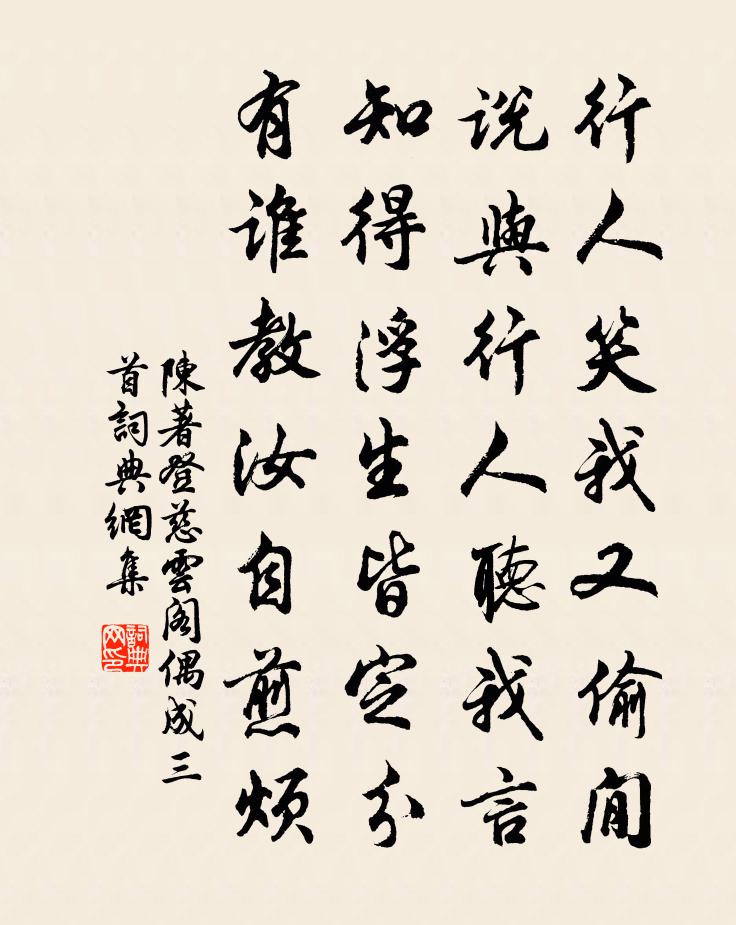 行人笑我又偷閒
說與行人聽我言
知得浮生皆定分
有誰教汝自煎煩
陳著登慈雲閣偶成三
首詞典網集
詞典网印